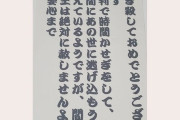 殺しておめでとうござ
す
判で時間かせぎをして、
間にあの世に逃げ込もう
えているようですが、間
は絶対に赦しませんよ
心まで